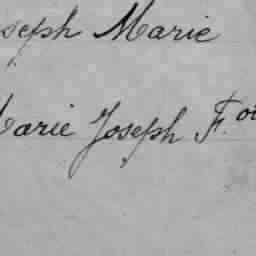 oseph Marie
Marie Joseph F.ois